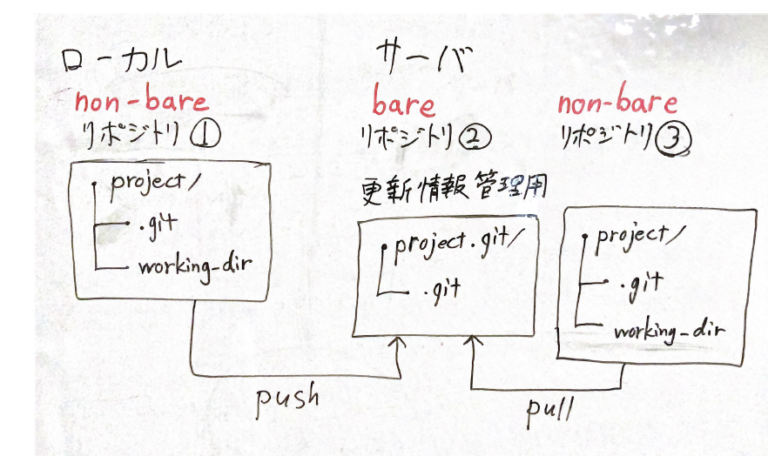 ローカル
non-bare
リポジトリ①
project/
.git
working-dir
サーバ
bare
リポジトリ②
更新情報管理用
project.git/
.git
non-bare
リポジトリ③
project/
.git
working-dir
push
pull